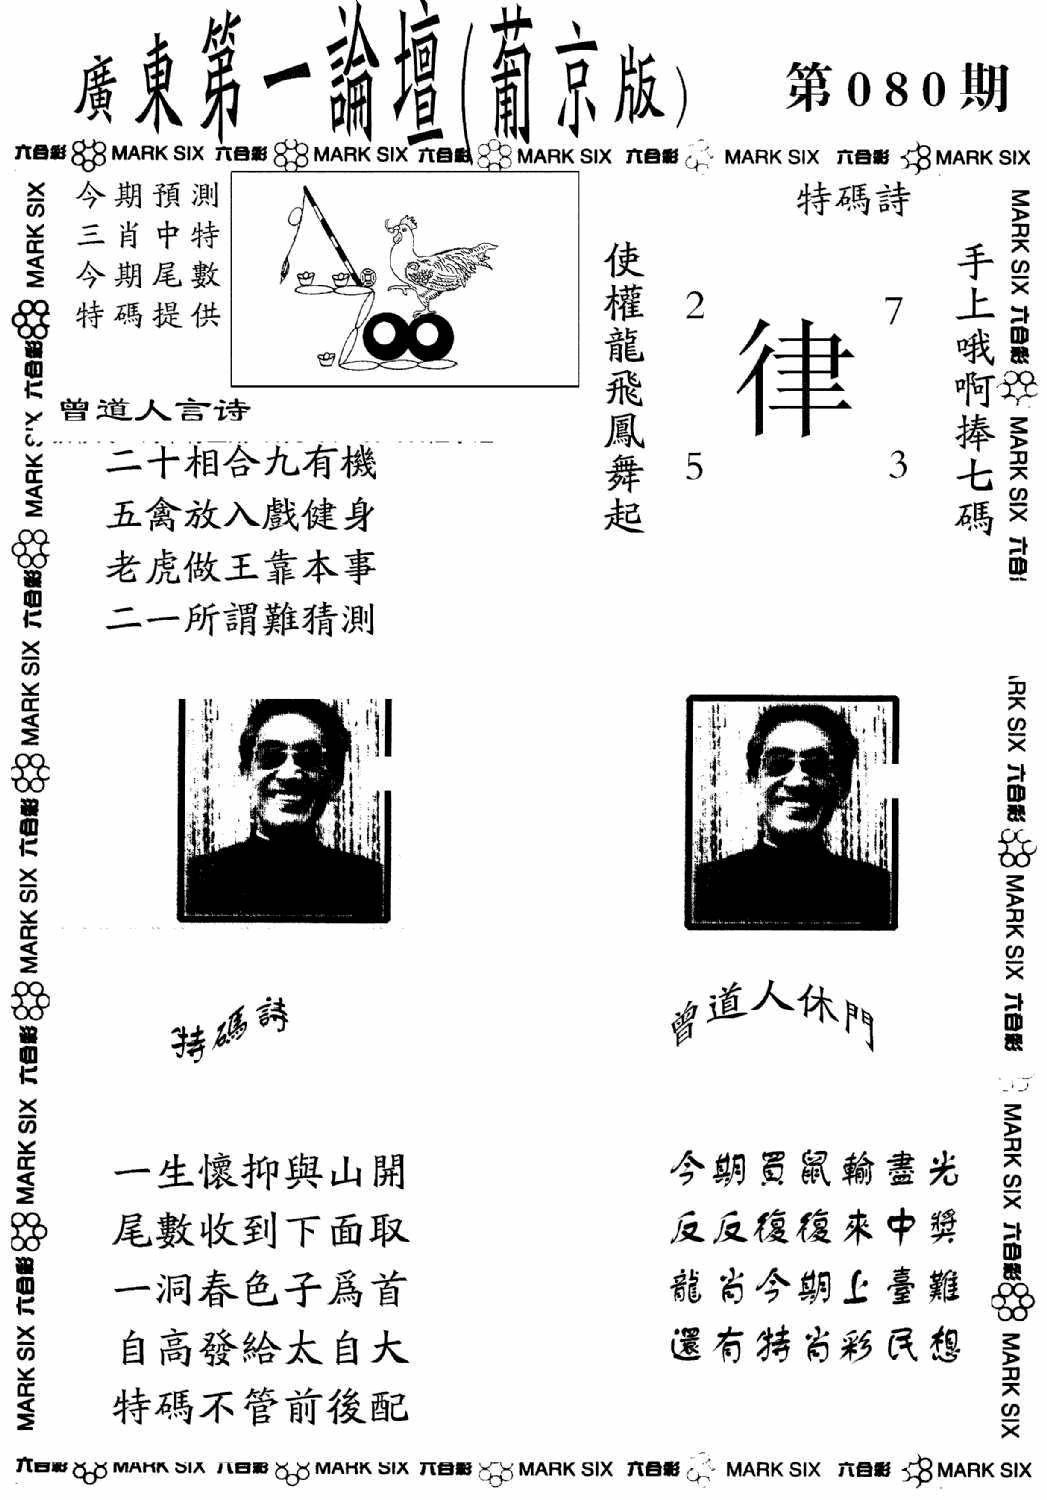 廣東第一論壇(葡京版)
第080期
六合彩 MARK SIX 六合彩 MARK SIX 六合彩 MARK SIX 六合彩 MARK SIX 六合彩 MARK SIX
MARK SIX 六合彩 MARK SIX 六合彩 MARK SIX 六合彩 MARK SIX 六合彩 MARK SIX 六合彩 MARK SIX
今期預測
三肖中特
今期尾數
特碼提供
特碼詩
使權龍飛鳳舞起
2
7
律
5
3
手上哦啊捧七碼
曾道人言诗
二十相合九有機
五禽放入戲健身
老虎做王靠本事
二一所謂難猜測
MARK SIX 六合彩 MARK SIX 六合
RK SIX 六合彩 MARK SIX 六合彩 MARK SIX 六合彩 MARK SIX
特碼詩
一生懷抑與山開
尾數收到下面取
一洞春色子爲首
自高發給太自大
特碼不管前後配
曾道人休門
今期買鼠輸盡光
反反復復來中獎
龍肖今期上臺難
還有特肖彩民想
六合彩 MARK SIX 六合彩 MARK SIX 六合彩 MARK SIX 六合彩 MARK SIX 六合彩 MARK SIX